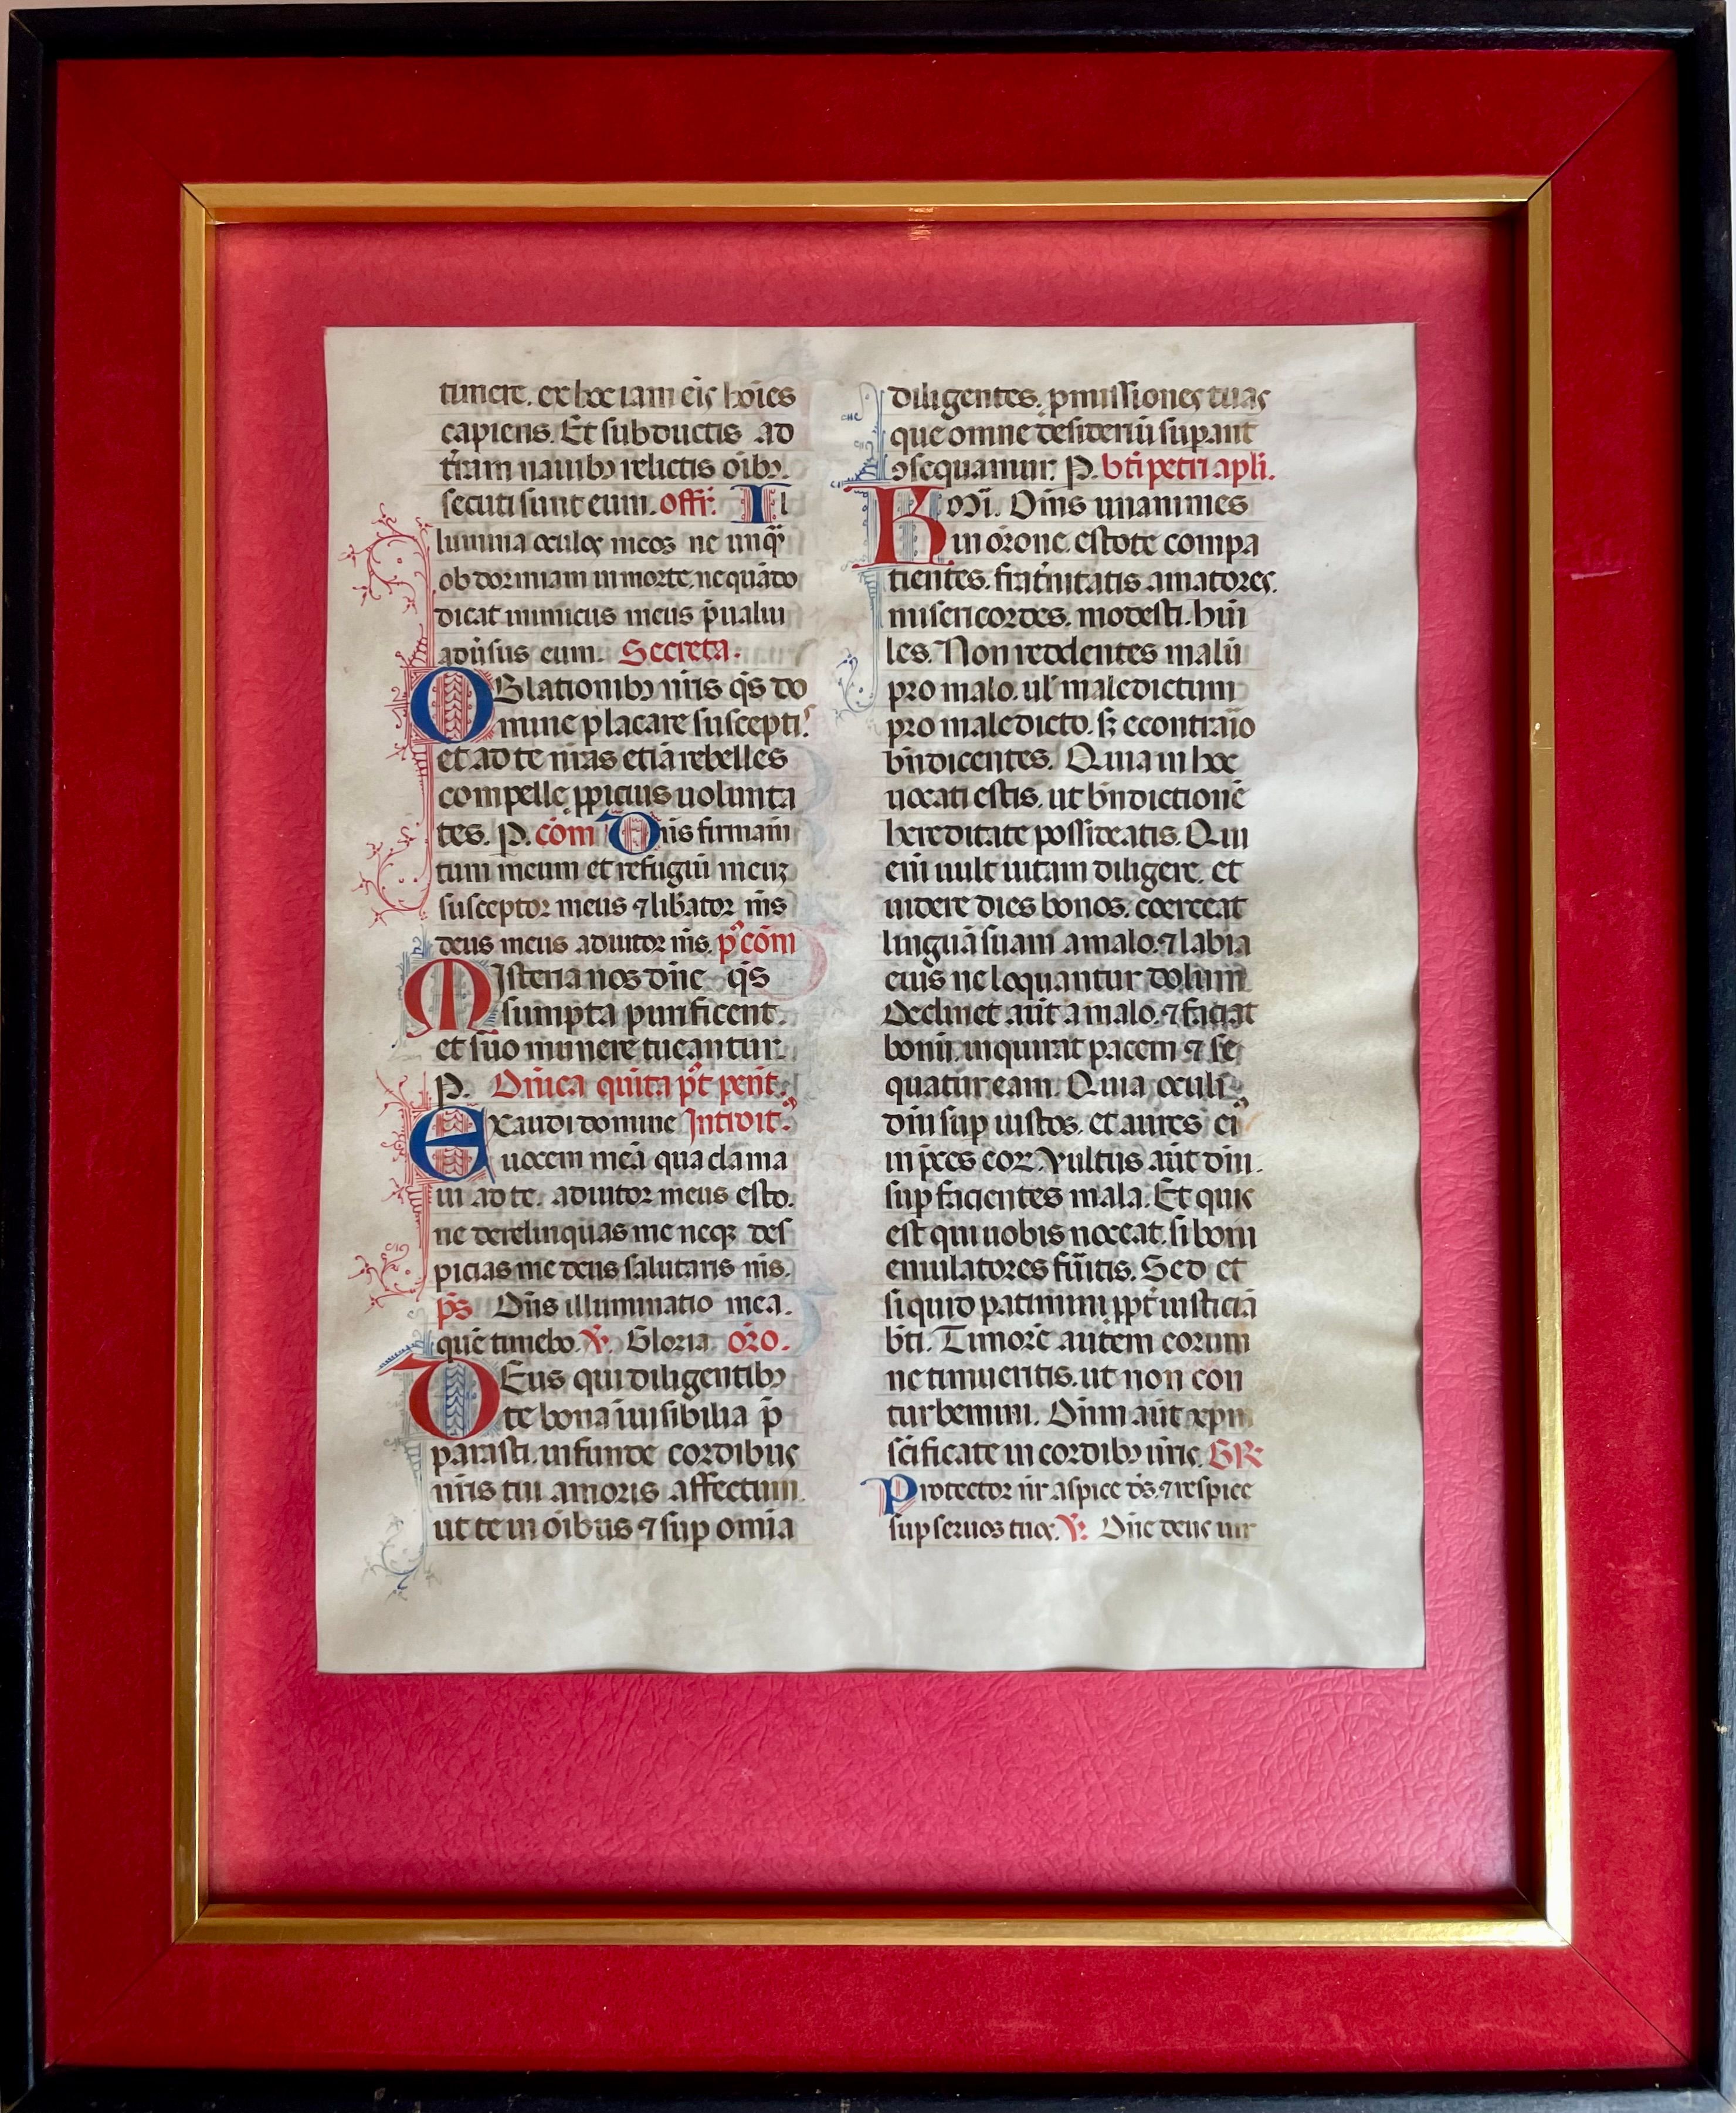 timere. ex hoc iam eis hoīes
capiens. Et subductis ad
t̄ram nauibꝫ relictis oībꝫ
secuti sunt eum. offr̄. Il
lumina oculos meos ne unq̄ꝫ
obdormiam in morte. ne quādo
dicat inimicus meus p̄ualui
adūsus eum. Secreta.
OBlationibꝫ nr̄is q̄s do
mine placare suscepti
et ad te nr̄as etiā rebelles
compelle ꝓpicius uolunta
tes. P. com̄ Dn̄s firmam
tum meum et refugiū meuꝫ
susceptor meus ⁊ lib̄ator m̄s
deus meus adiutor m̄s. p̊ com̄
MIsteria nos dn̄e q̄s
sumpta purificent.
et suo munere tueantur.
P. Dn̄ica quīta pt̊ pent̄.
EXaudi domine Introit᷒
uocem meā qua clama
ui ad te. adiutor meus esto.
ne derelinquas me neqꝫ des
picias me deus salutaris m̄s.
p̄s Dn̄s illuminatio mea.
quē timebo. V̄. Gloria. or̄o.
DEus qui diligentibꝫ
te bona inuisibilia p̄
parasti. infunde cordibus
nr̄is tui amoris affectum.
ut te in oībus ⁊ suꝑ omīa
diligentes. ꝓmissiones tuas
que omne desideriū suꝑant
ꝯsequamur. P. bt̄i petri apl̄i.
Kmi᷒. Om̄s unanimes
in or̄one estote compa
tientes. frat̄nitatis amatores.
misericordes. modesti. hūi
les. Non reddentes malū
pro malo. ul̄ maledictum
pro maledicto. sꝫ econtrar̄io
bn̄dicentes. Quia in hoc
uocati estis. ut bn̄dictionē
hereditate possideatis. Qui
eīi uult uitam diligere. et
uidere dies bonos. coerceat
linguā suam a malo. ⁊ labia
eius ne loquantur dolum
Declinet aūt a malo. ⁊ faciat
bonū. inquirat pacem ⁊ se
quatur eam. Quia oculi
dn̄i suꝑ iustos. et aures ei᷒
in p̄ces eoꝝ. Vultus aūt dn̄i.
suꝑ facientes mala. Et quis
est qui uobis noceat. si boni
emulatores fūitis. Sed et
si quid patimini ꝓpt̄ iusticiā
bt̄i. Timorē autem eorum
ne timueritis. ut non con
turbemini. Dn̄m aūt xp̄m
sc̄ificate in cordibꝫ ur̄is. GR
Protector nr̄ aspice ds̄. ⁊ respice
suꝑ seruos tuos. V̄. Dn̄e deus uir